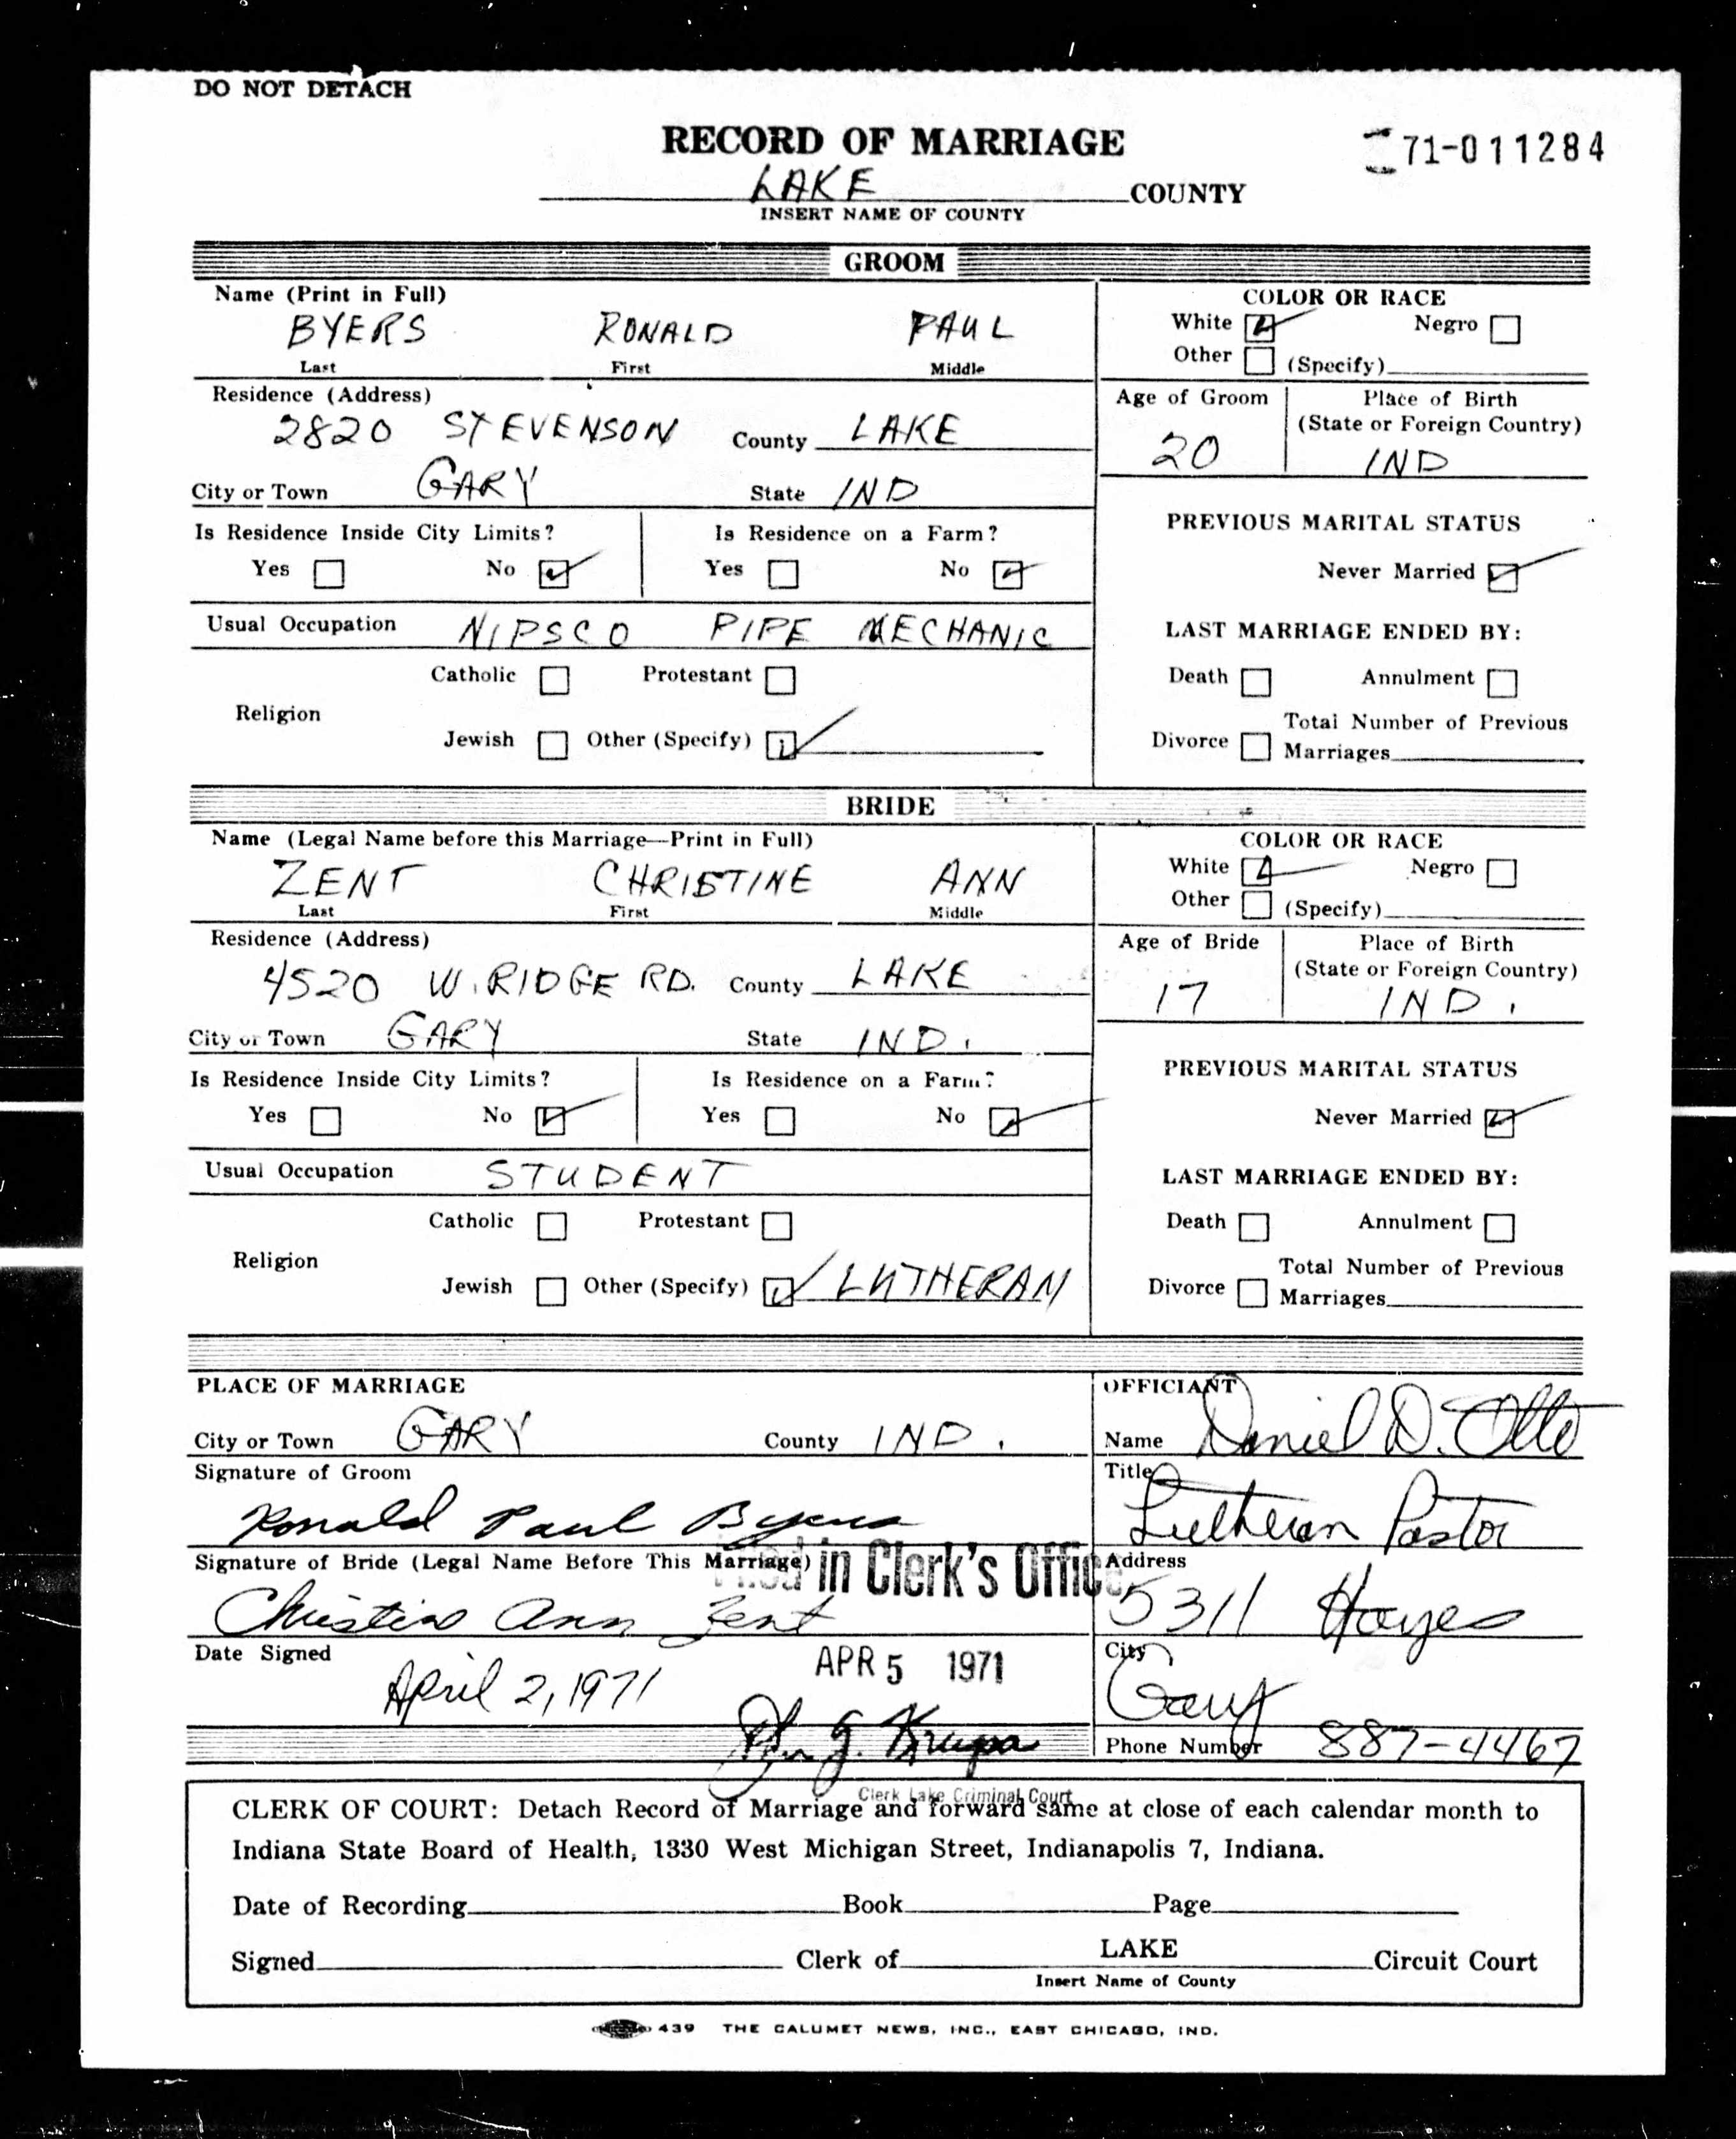 DO NOT DETACH
RECORD OF MARRIAGE
71-011284
LAKE COUNTY
INSERT NAME OF COUNTY
GROOM
Name (Print in Full)
BYERS RONALD PAUL
Last First Middle
COLOR OR RACE
White Negro
Other (Specify)
Residence (Address)
2820 STEVENSON County LAKE
City or Town GARY State IND
Age of Groom
20
Place of Birth
(State or Foreign Country)
IND
Is Residence Inside City Limits?
Yes No
Is Residence on a Farm?
Yes No
PREVIOUS MARITAL STATUS
Never Married
Usual Occupation NIPSCO PIPE MECHANIC
LAST MARRIAGE ENDED BY:
Religion
Catholic Protestant
Jewish Other (Specify)
Death Annulment
Divorce Total Number of Previous
Marriages
BRIDE
Name (Legal Name before this Marriage—Print in Full)
ZENT CHRISTINE ANN
Last First Middle
COLOR OR RACE
White Negro
Other (Specify)
Residence (Address)
4520 W. RIDGE RD. County LAKE
City or Town GARY State IND.
Age of Bride
17
Place of Birth
(State or Foreign Country)
IND.
Is Residence Inside City Limits?
Yes No
Is Residence on a Farm?
Yes No
PREVIOUS MARITAL STATUS
Never Married
Usual Occupation STUDENT
LAST MARRIAGE ENDED BY:
Religion
Catholic Protestant
Jewish Other (Specify) LUTHERAN
Death Annulment
Divorce Total Number of Previous
Marriages
PLACE OF MARRIAGE
City or Town GARY County IND.
Signature of Groom
Ronald Paul Byers
Signature of Bride (Legal Name Before This Marriage)
Christine Ann Zent
Date Signed
April 2, 1971
Filed in Clerk's Office
APR 5 1971
J. Krupa
Clerk Lake Criminal Court
OFFICIANT
Name Daniel D. Otto
Title
Lutheran Pastor
Address
5311 Hayes
City
Gary
Phone Number 887-4467
CLERK OF COURT: Detach Record of Marriage and forward same at close of each calendar month to
Indiana State Board of Health, 1330 West Michigan Street, Indianapolis 7, Indiana.
Date of Recording Book Page
Signed Clerk of LAKE Circuit Court
Insert Name of County
439 THE CALUMET NEWS, INC., EAST CHICAGO, IND.